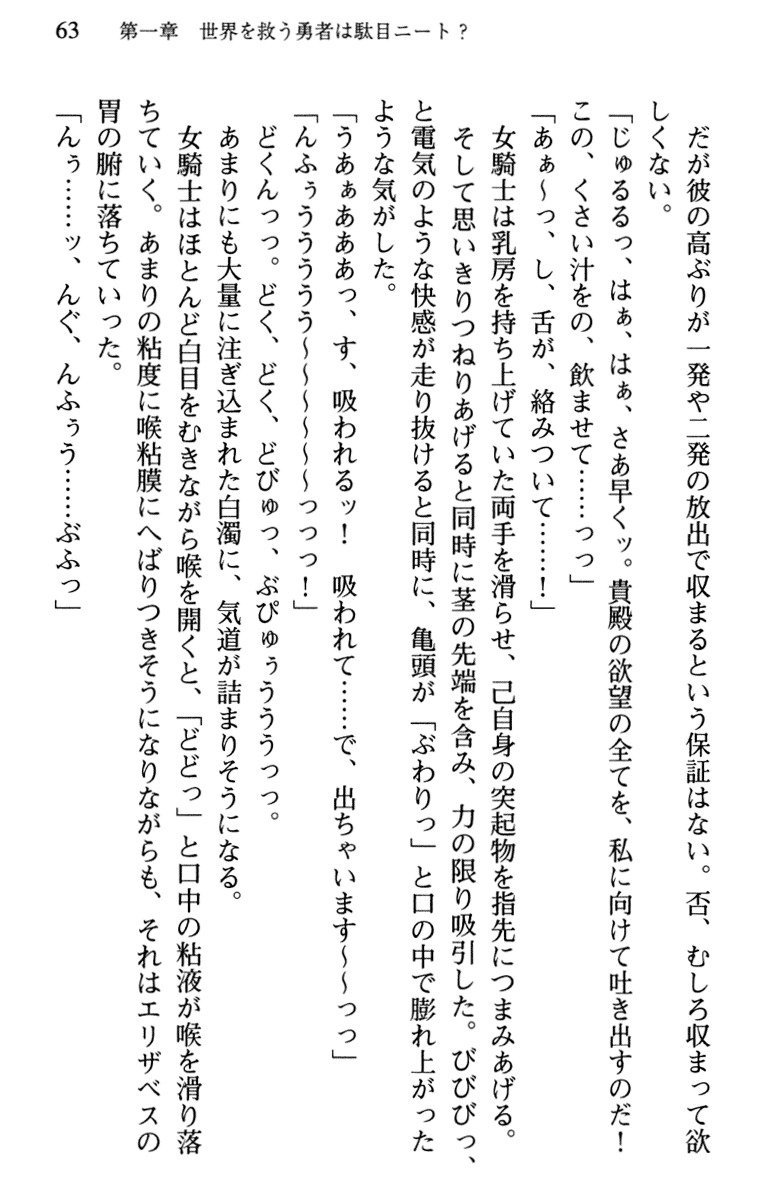 63　第一章　世界を救う勇者は駄目ニート？
　だが彼の高ぶりが一発や二発の放出で収まるという保証はない。否、むしろ収まって欲
しくない。
「じゅるるっ、はぁ、はぁ、さあ早くッ。貴殿の欲望の全てを、私に向けて吐き出すのだ！
この、くさい汁をの、飲ませて……っっ」
「あぁ～っ、し、舌が、絡みついて……！」
　女騎士は乳房を持ち上げていた両手を滑らせ、己自身の突起物を指先につまみあげる。
　そして思いきりつねりあげると同時に茎の先端を含み、力の限り吸引した。びびびっ、
と電気のような快感が走り抜けると同時に、亀頭が「ぶわりっ」と口の中で膨れ上がった
ような気がした。
「うあぁあああっ、す、吸われるッ！　吸われて……で、出ちゃいます～～っっ」
「んふぅうううう～～～～～～っっっ！」
　どくんっっ。どく、どく、どびゅっ、ぶぴゅぅうううっっ。
　あまりにも大量に注ぎ込まれた白濁に、気道が詰まりそうになる。
　女騎士はほとんど白目をむきながら喉を開くと、「どどっ」と口中の粘液が喉を滑り落
ちていく。あまりの粘度に喉粘膜にへばりつきそうになりながらも、それはエリザベスの
胃の腑に落ちていった。
「んぅ……ッ、んぐ、んふぅう……ぶふっ」